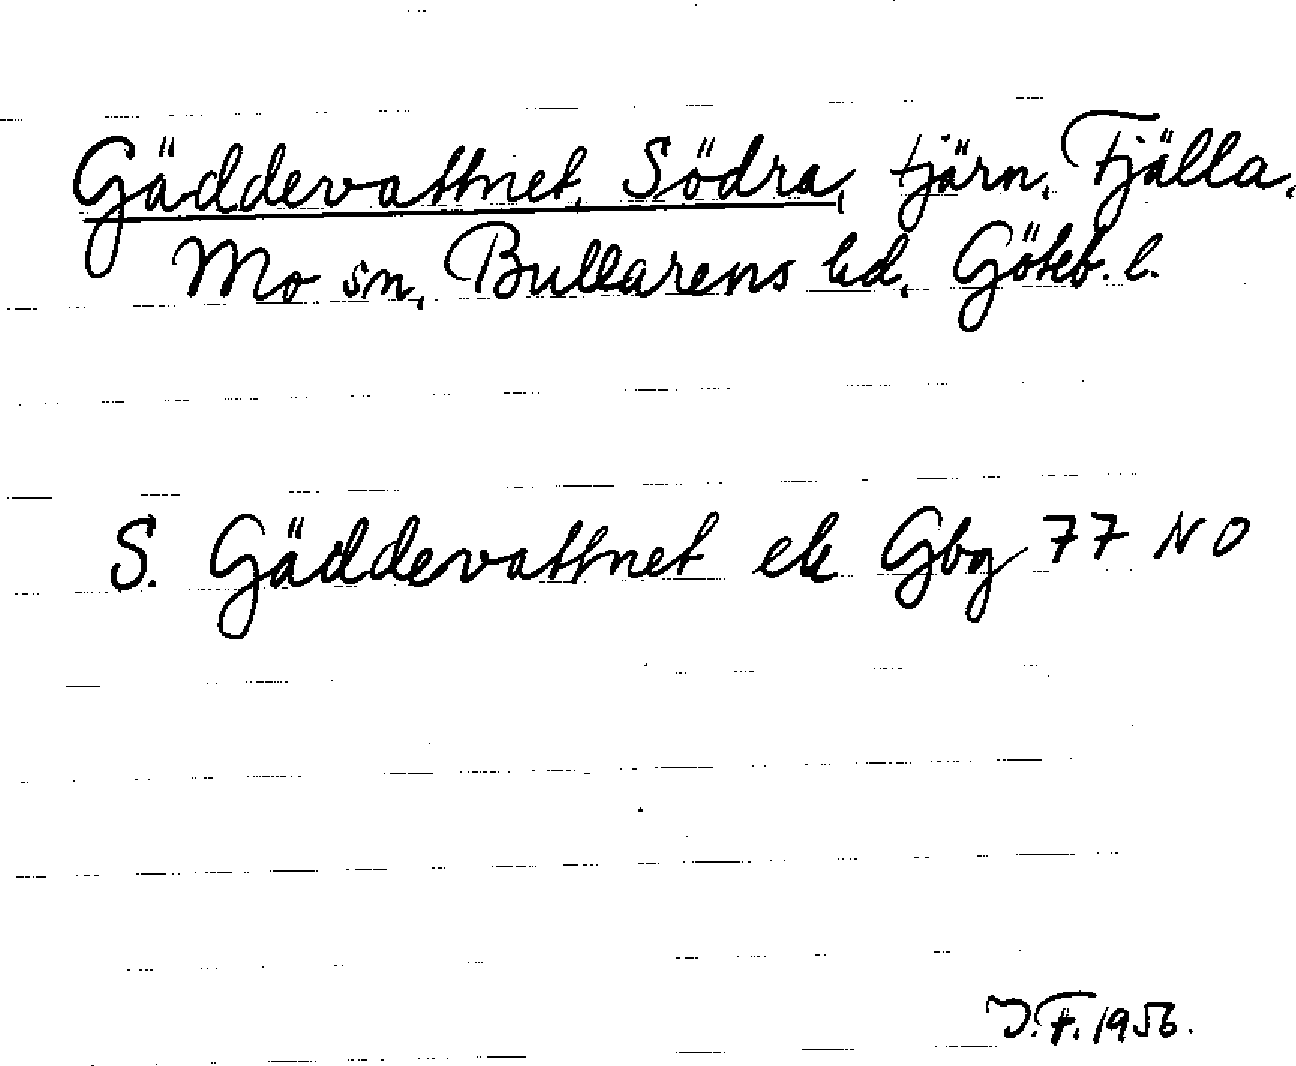 Gäddevattnet, Södra, tjärn, Fjälla,
Mo sn, Bullarens hd, Göteb. l.
S. Gäddevattnet ek Gbg 77 NO
J.F. 1956.